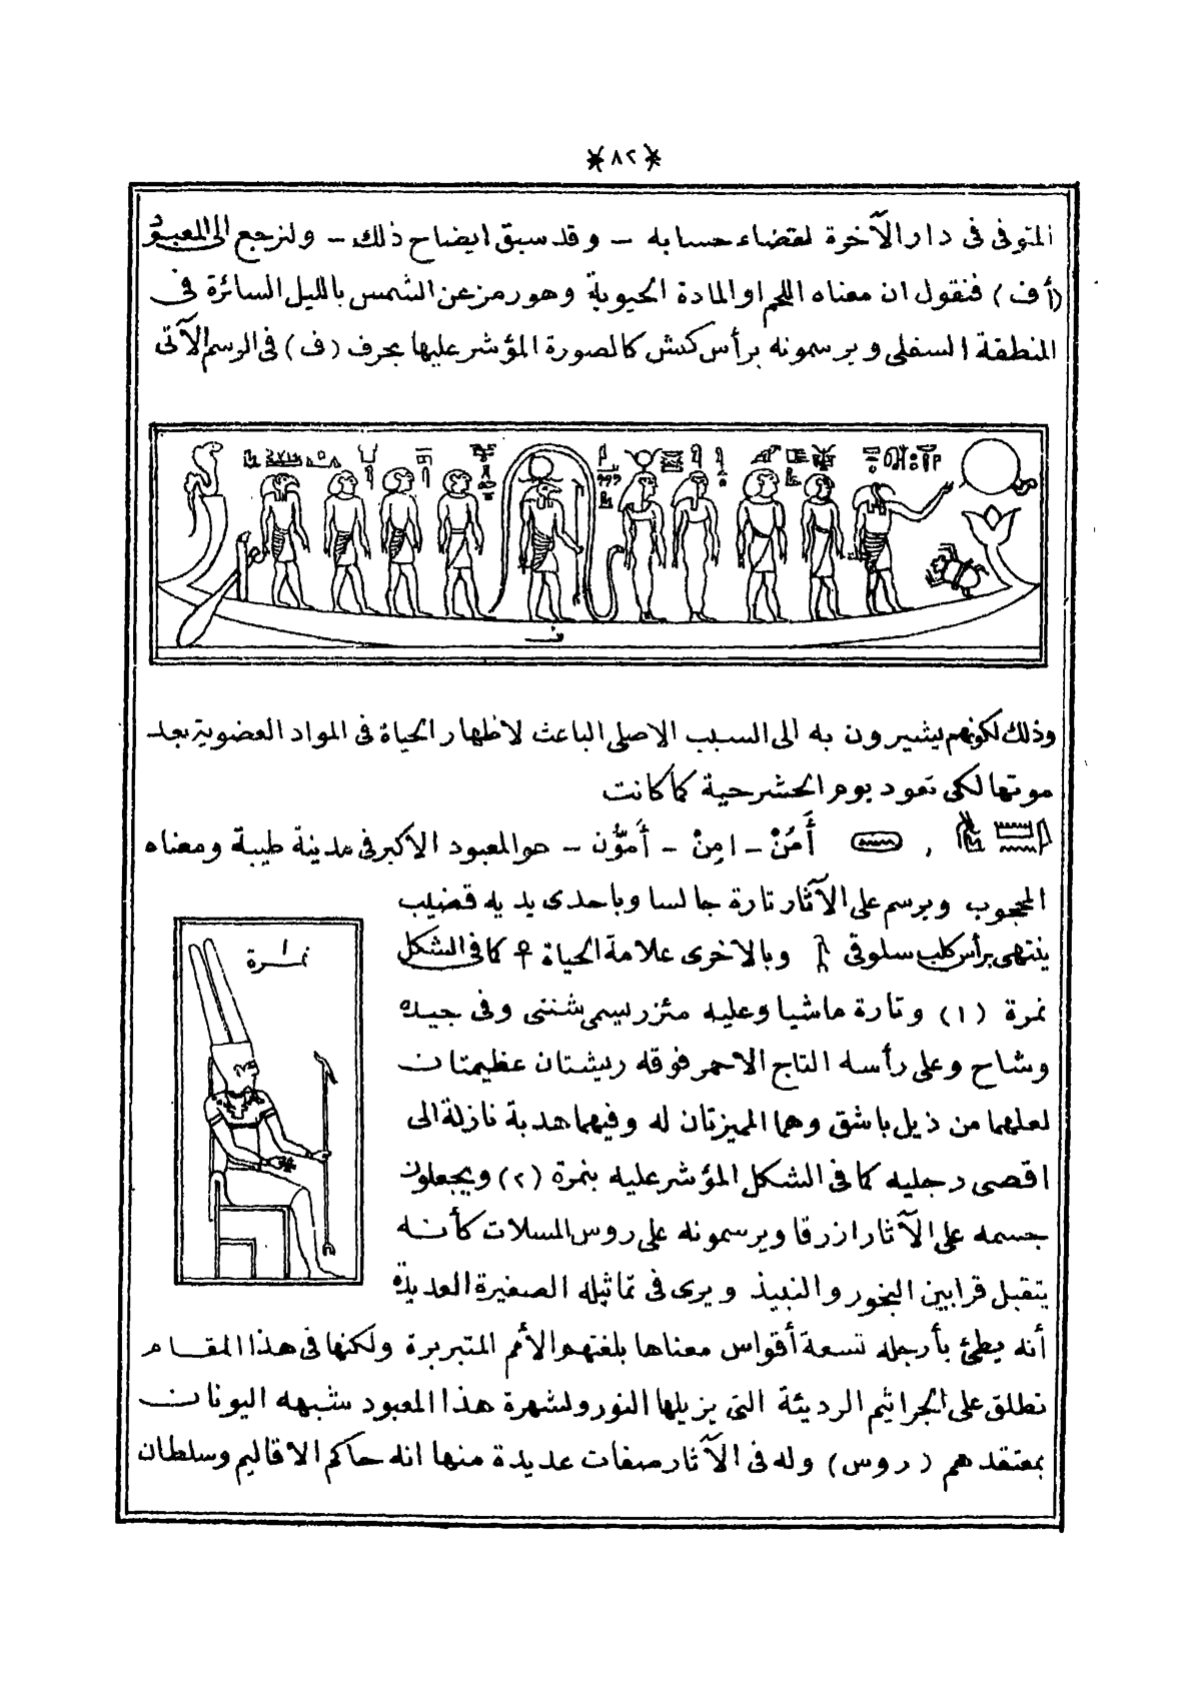 ٨٢
المتوفى فى دار الآخرة لقضاء حسابه – وقد سبق ايضاح ذلك – ولنرجع الى المعبود
(أف) فنقول ان معناه اللحم او المادة الحيوية وهو رمز عن الشمس بالليل السائرة فى
المنطقة السفلى ويرسمونه برأس كبش كالصورة المؤشر عليها بحرف (ف) فى الرسم الآتى
ف
وذلك لكونهم يشيرون به الى السبب الاصلى الباعث لاظهار الحياة فى المواد العضوية بعد
موتها لكى تعود يوم الحشر حية كما كانت
أَمُنْ – امِنْ – أَمُّون – هو المعبود الأكبر فى مدينة طيبة ومعناه
المحجوب ويرسم على الآثار تارة جالسا وباحدى يديه قضيب
ينتهى برأس كلب سلوقى وبالاخرى علامة الحياة ☥ كما فى الشكل
نمرة (١) وتارة ماشيا وعليه مئزر يسمى شنتى وفى جيده
وشاح وعلى رأسه التاج الاحمر فوقه ريشتان عظيمتان
لعلهما من ذيل باشق وهما المميزتان له وفيهما هدبة نازلة الى
اقصى رجليه كما فى الشكل المؤشر عليه بنمرة (٢) ويجعلون
جسمه على الآثار ازرقا ويرسمونه على روس المسلات كأنه
يتقبل قرابين البخور والنبيذ ويرى فى تماثيله الصغيرة العديدة
أنه يطئ بأرجله تسعة أقواس معناها بلغتهم الأمم المتبربرة ولكنها فى هذا المقام
تطلق على الجراثيم الرديئة التى يزيلها النور ولشهرة هذا المعبود شبهه اليونان
بمعتقدهم (روس) وله فى الآثار صفات عديدة منها انه حاكم الاقاليم وسلطان
نمرة ١